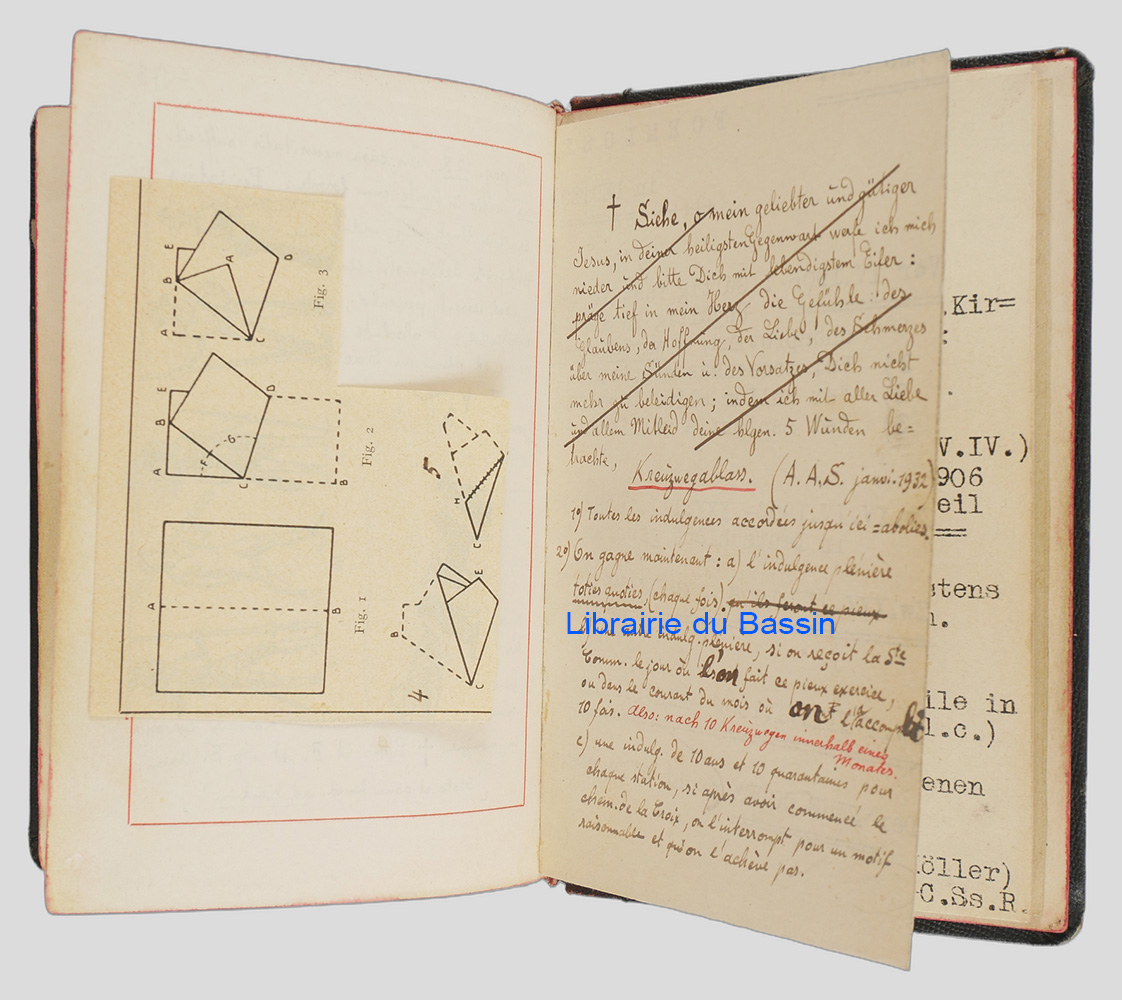 A
E
B
A
D
C
Fig. 3
A
B
E
D
G
F
C
B
Fig. 2
A
B
Fig. 1
5
H
C
4
B
E
C
† Siehe, o mein geliebter und gütiger
Jesus, in deiner heiligsten Gegenwart werfe ich mich
nieder und bitte Dich mit lebendigstem Eifer :
präge tief in mein Herz die Gefühle des
Glaubens, der Hoffnung, der Liebe, des Schmerzes
über meine Sünden u. des Vorsatzes, Dich nicht
mehr zu beleidigen ; indem ich mit aller Liebe
und allem Mitleid deine hlgen. 5 Wunden be=
trachte,
Kreuzwegablass. (A. A. S. janvi. 1932)
1º) Toutes les indulgences accordées jusqu'ici = abolies.
2º) On gagne maintenant : a) l'indulgence plénière
toties quoties, (chaque fois). qu'ils feront ce pieux
b) une autre indulg. plénière, si on reçoit la Ste
Comm. le jour où l'on fait ce pieux exercice,
ou dans le courant du mois où on l'a accompli
10 fois. Also: nach 10 Kreuzwegen innerhalb eines
Monates.
c) une indulg. de 10 ans et 10 quarantaines pour
chaque station, si après avoir commencé le
chem. de la Croix, on l'interrompt pour un motif
raisonnable et qu'on l'achève pas.
.Kir=
:
V.IV.)
906
eil
stens
ile in
l.c.)
enen
öller)
C.Ss.R.
Librairie du Bassin